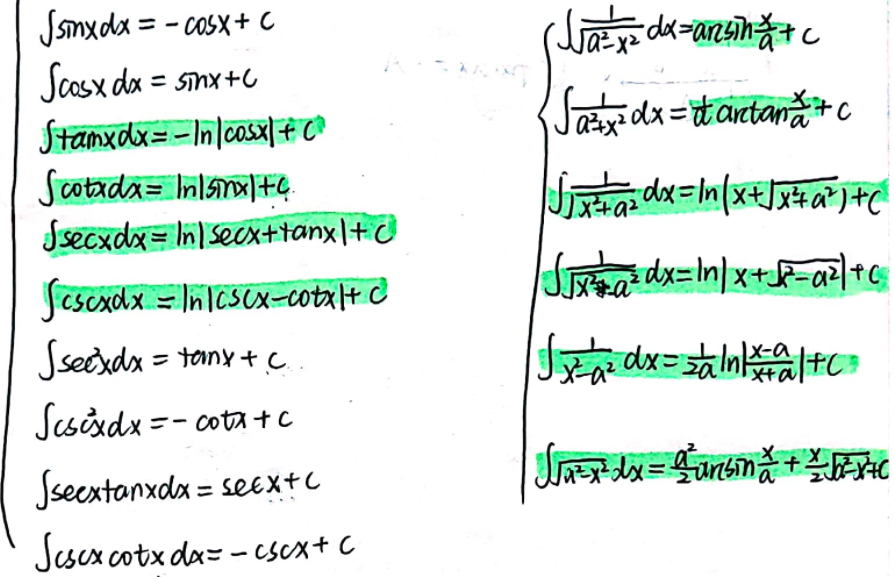 ∫sinxdx = -cosx + C
∫cosxdx = sinx+C
∫tanxdx = -ln|cosx| + C
∫cotxdx = ln|sinx|+C
∫secxdx = ln|secx+tanx|+C
∫cscxdx = ln|cscx-cotx|+C
∫sec²xdx = tanx + C
∫csc²xdx = -cotx + C
∫secxtanxdx = secx+C
∫cscxcotxdx = -cscx + C
∫1/√(a²-x²) dx = arcsin x/a + C
∫1/(a²+x²) dx = 1/a arctan x/a + C
∫1/√(x²+a²) dx = ln(x+√(x²+a²))+C
∫1/√(x²-a²) dx = ln|x+√(x²-a²)|+C
∫1/(x²-a²) dx = 1/2a ln|(x-a)/(x+a)|+C
∫√(a²-x²) dx = a²/2 arcsin x/a + x/2 √(a²-x²)+C